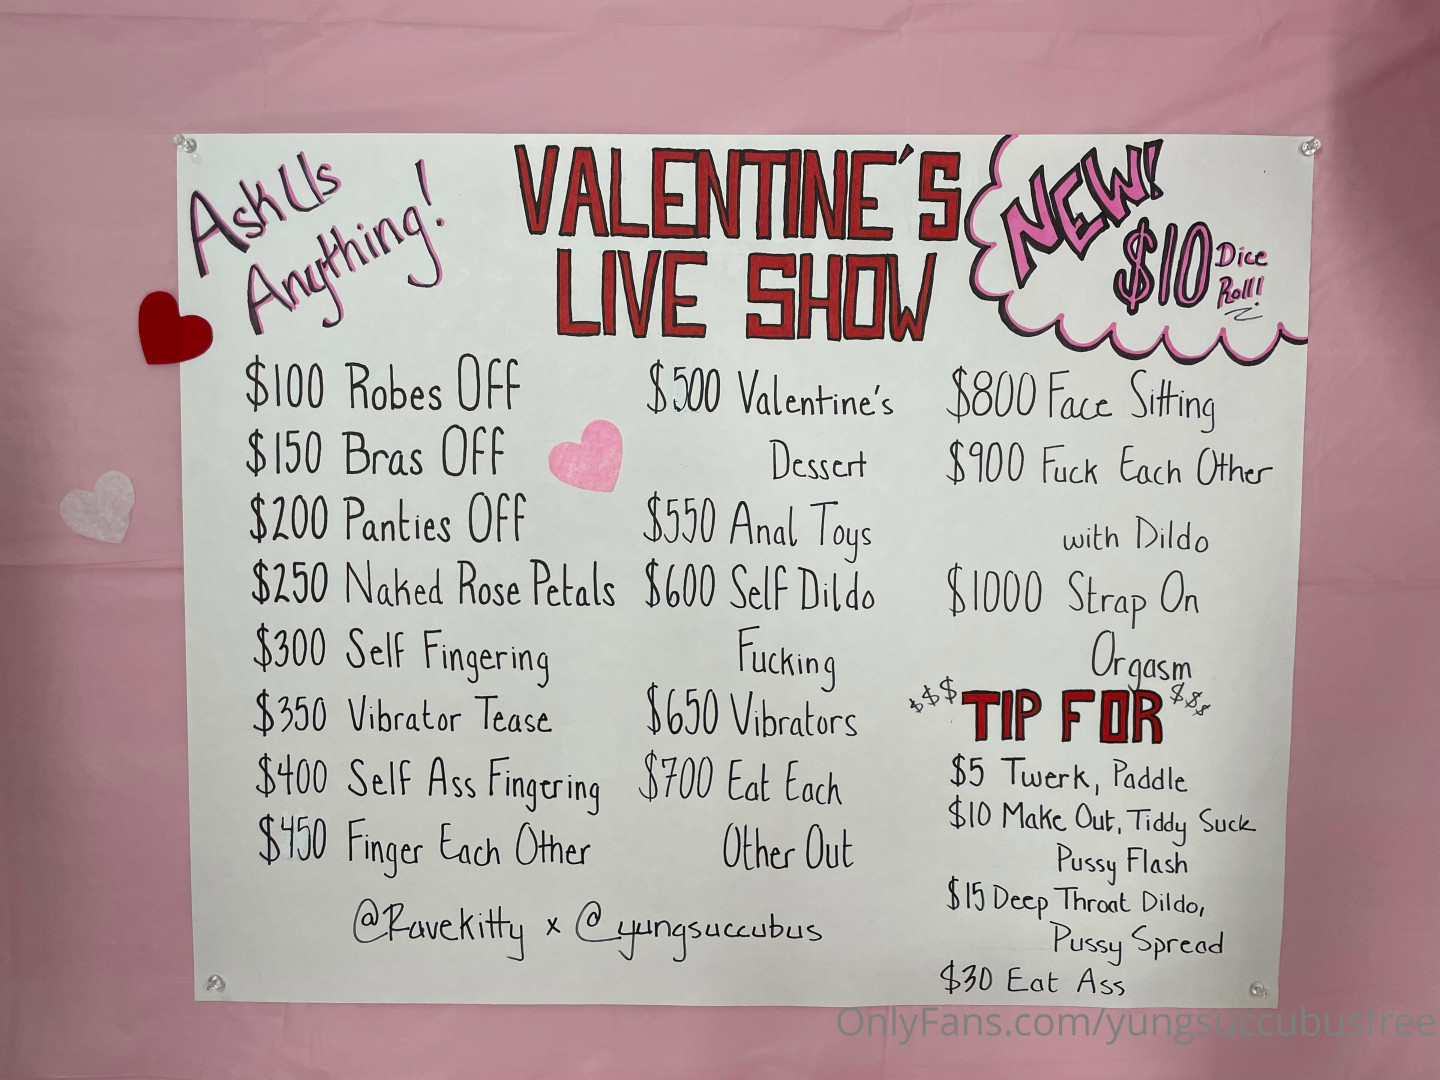 Ask Us
Anything!
VALENTINE'S
LIVE SHOW
NEW!
$10 Dice
Roll!
$100 Robes Off
$150 Bras Off
$200 Panties Off
$250 Naked Rose Petals
$300 Self Fingering
$350 Vibrator Tease
$400 Self Ass Fingering
$450 Finger Each Other
$500 Valentine's
Dessert
$550 Anal Toys
$600 Self Dildo
Fucking
$650 Vibrators
$700 Eat Each
Other Out
$800 Face Sitting
$900 Fuck Each Other
with Dildo
$1000 Strap On
Orgasm
$$$ TIP FOR $$$
$5 Twerk, Paddle
$10 Make Out, Tiddy Suck
Pussy Flash
$15 Deep Throat Dildo,
Pussy Spread
$30 Eat Ass
@Ravekitty x @yungsuccubus
OnlyFans.com/yungsuccubusfree